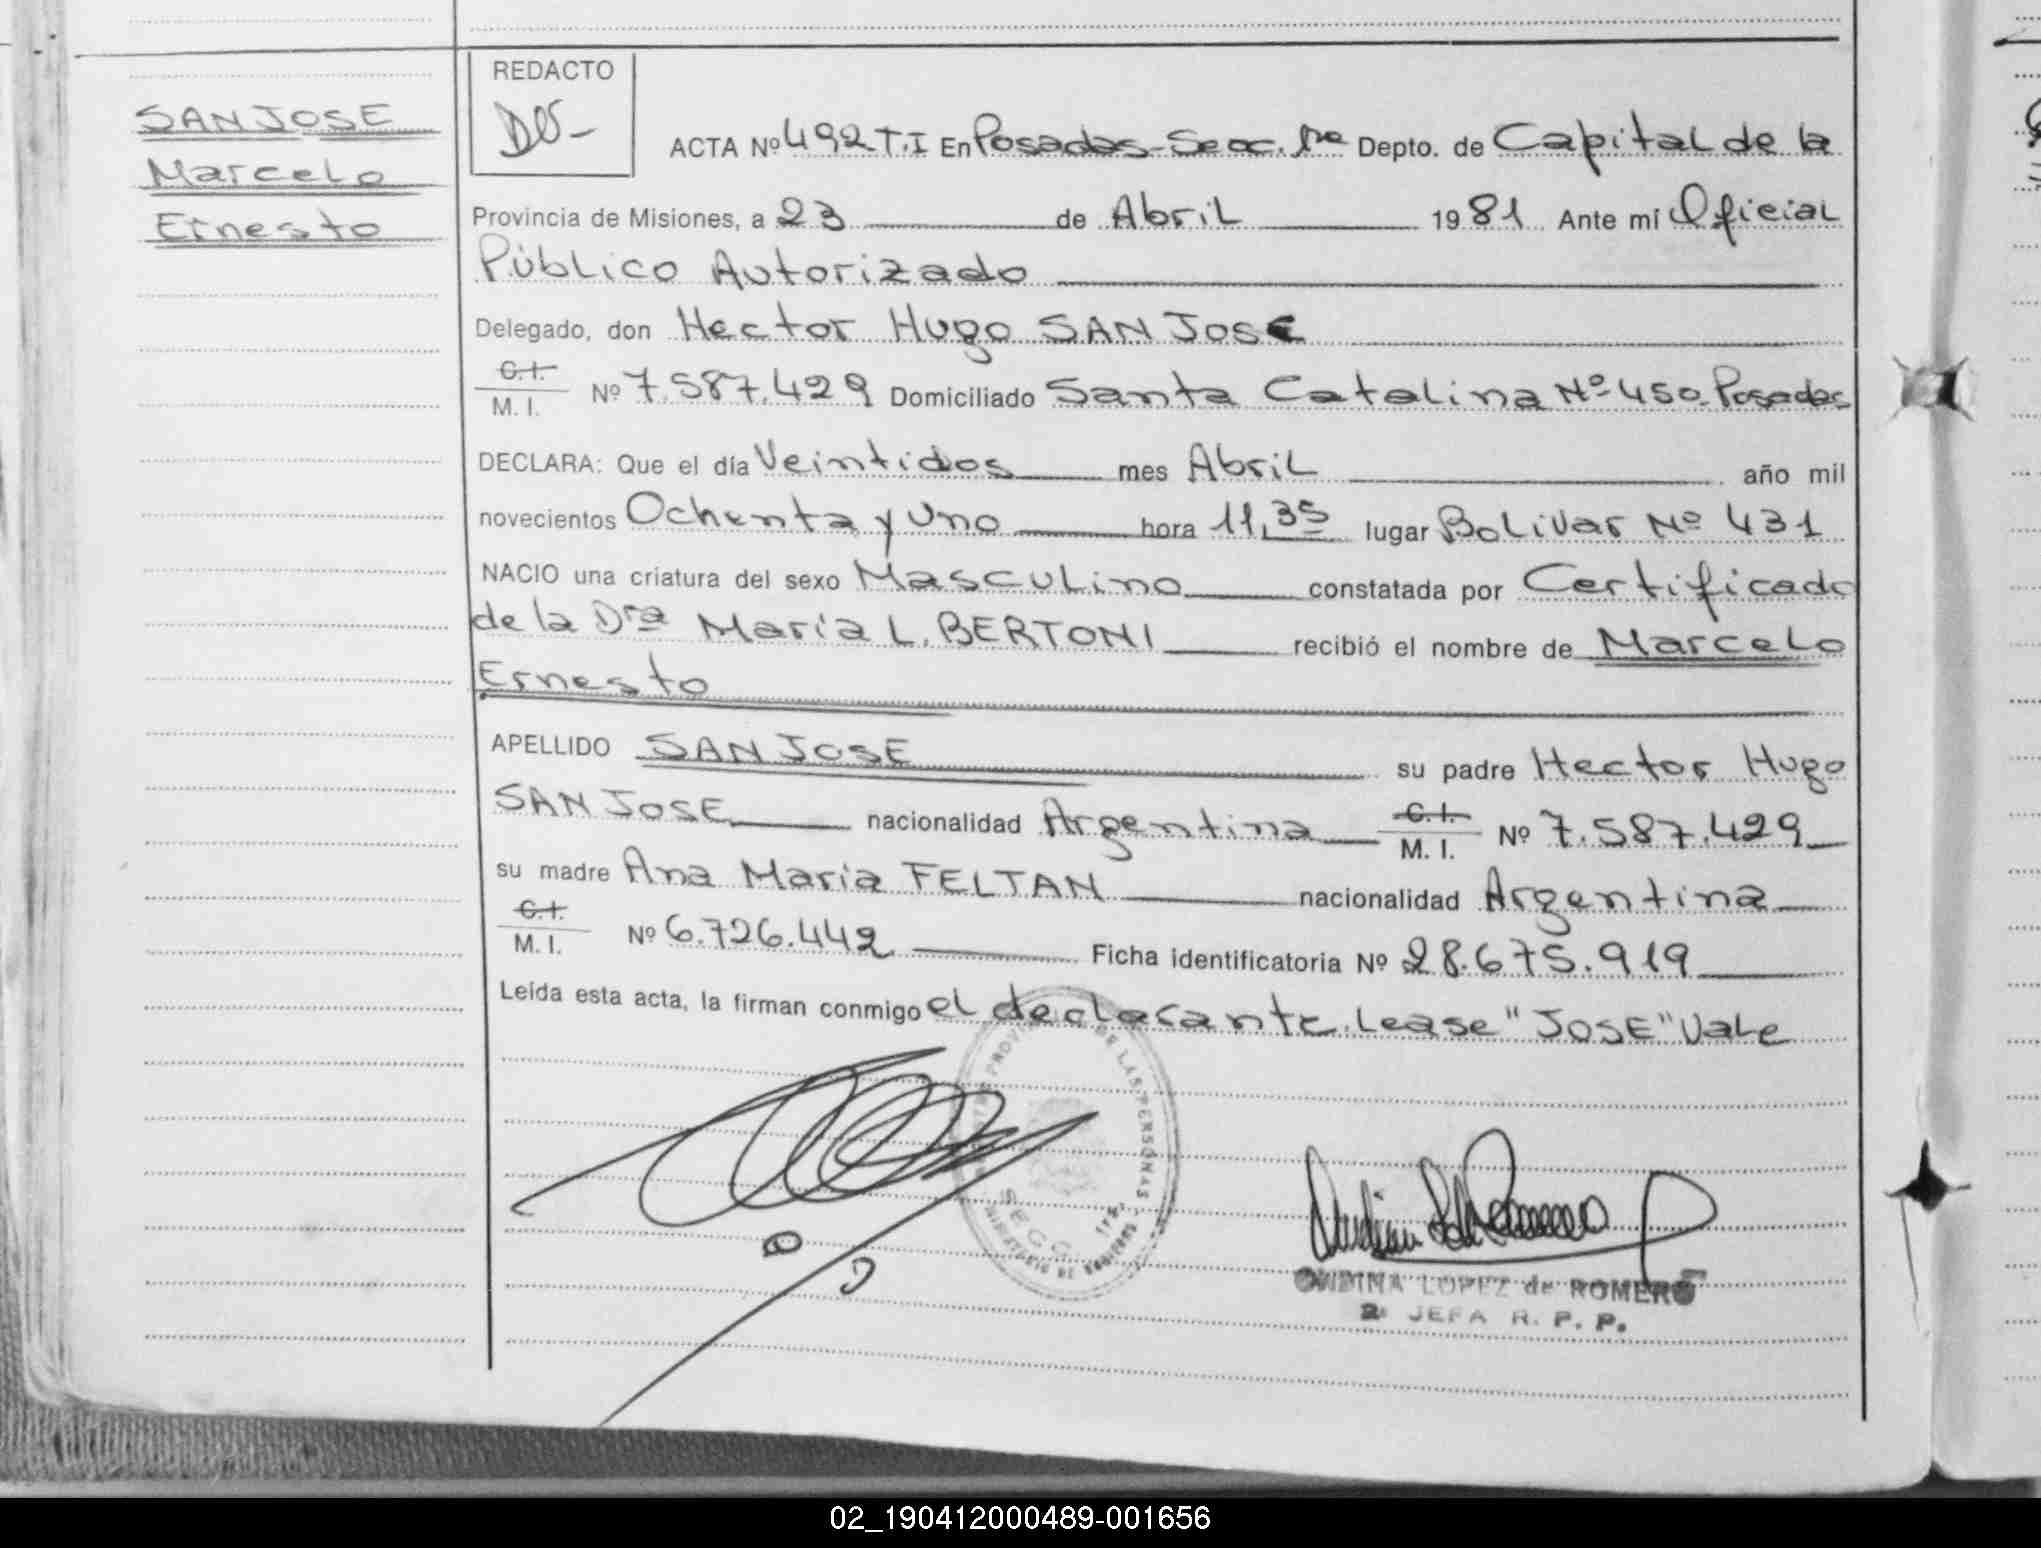 SAN JOSE
Marcelo
Ernesto
REDACTO
ACTA Nº 492 T.I En Posadas-Secc. 1ra Depto. de Capital de la
Provincia de Misiones, a 23 de Abril 1981 Ante mí Oficial
Público Autorizado
Delegado, don Hector Hugo SAN JOSE
C.I.
M. I. Nº 7.587.429 Domiciliado Santa Catalina Nº 450. Posadas
DECLARA: Que el día Veintidos mes Abril año mil
novecientos Ochenta y Uno hora 11,35 lugar Bolivar Nº 431
NACIO una criatura del sexo Masculino constatada por Certificado
de la Dra María L. BERTONI recibió el nombre de Marcelo
Ernesto
APELLIDO SAN JOSE su padre Hector Hugo
SAN JOSE nacionalidad Argentina C.I. M. I. Nº 7.587.429
su madre Ana María FELTAN nacionalidad Argentina
C.I.
M. I. Nº 6.726.442 Ficha identificatoria Nº 28.675.919
Leída esta acta, la firman conmigo el declarante. Lease "JOSE" Vale
DE LAS PERSONAS
LOPEZ de ROMERO
2ª JEFA R. P. P.
02_190412000489-001656